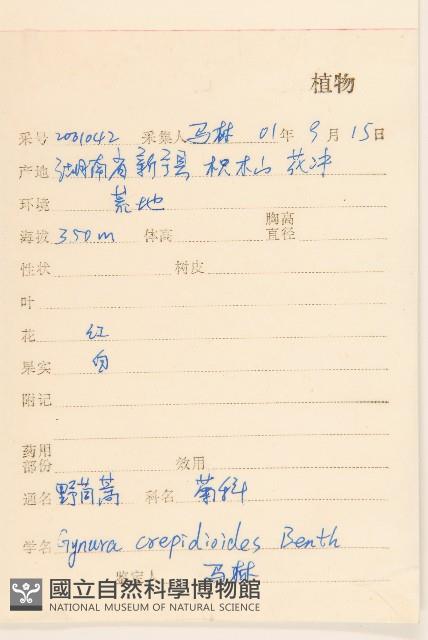 植物
采号 2001042 采集人 马林 01年 9月 15日
产地 湖南省新宁县 枳木山 茂冲
环境 荒地
海拔 350m 体高 胸高直径
性状 树皮
叶
花 红
果实 白
附记
药用部份 效用
通名 野茼蒿 科名 菊科
学名 Gynura crepidioides Benth
鉴定人 马林
國立自然科學博物館
NATIONAL MUSEUM OF NATURAL SCIENCE